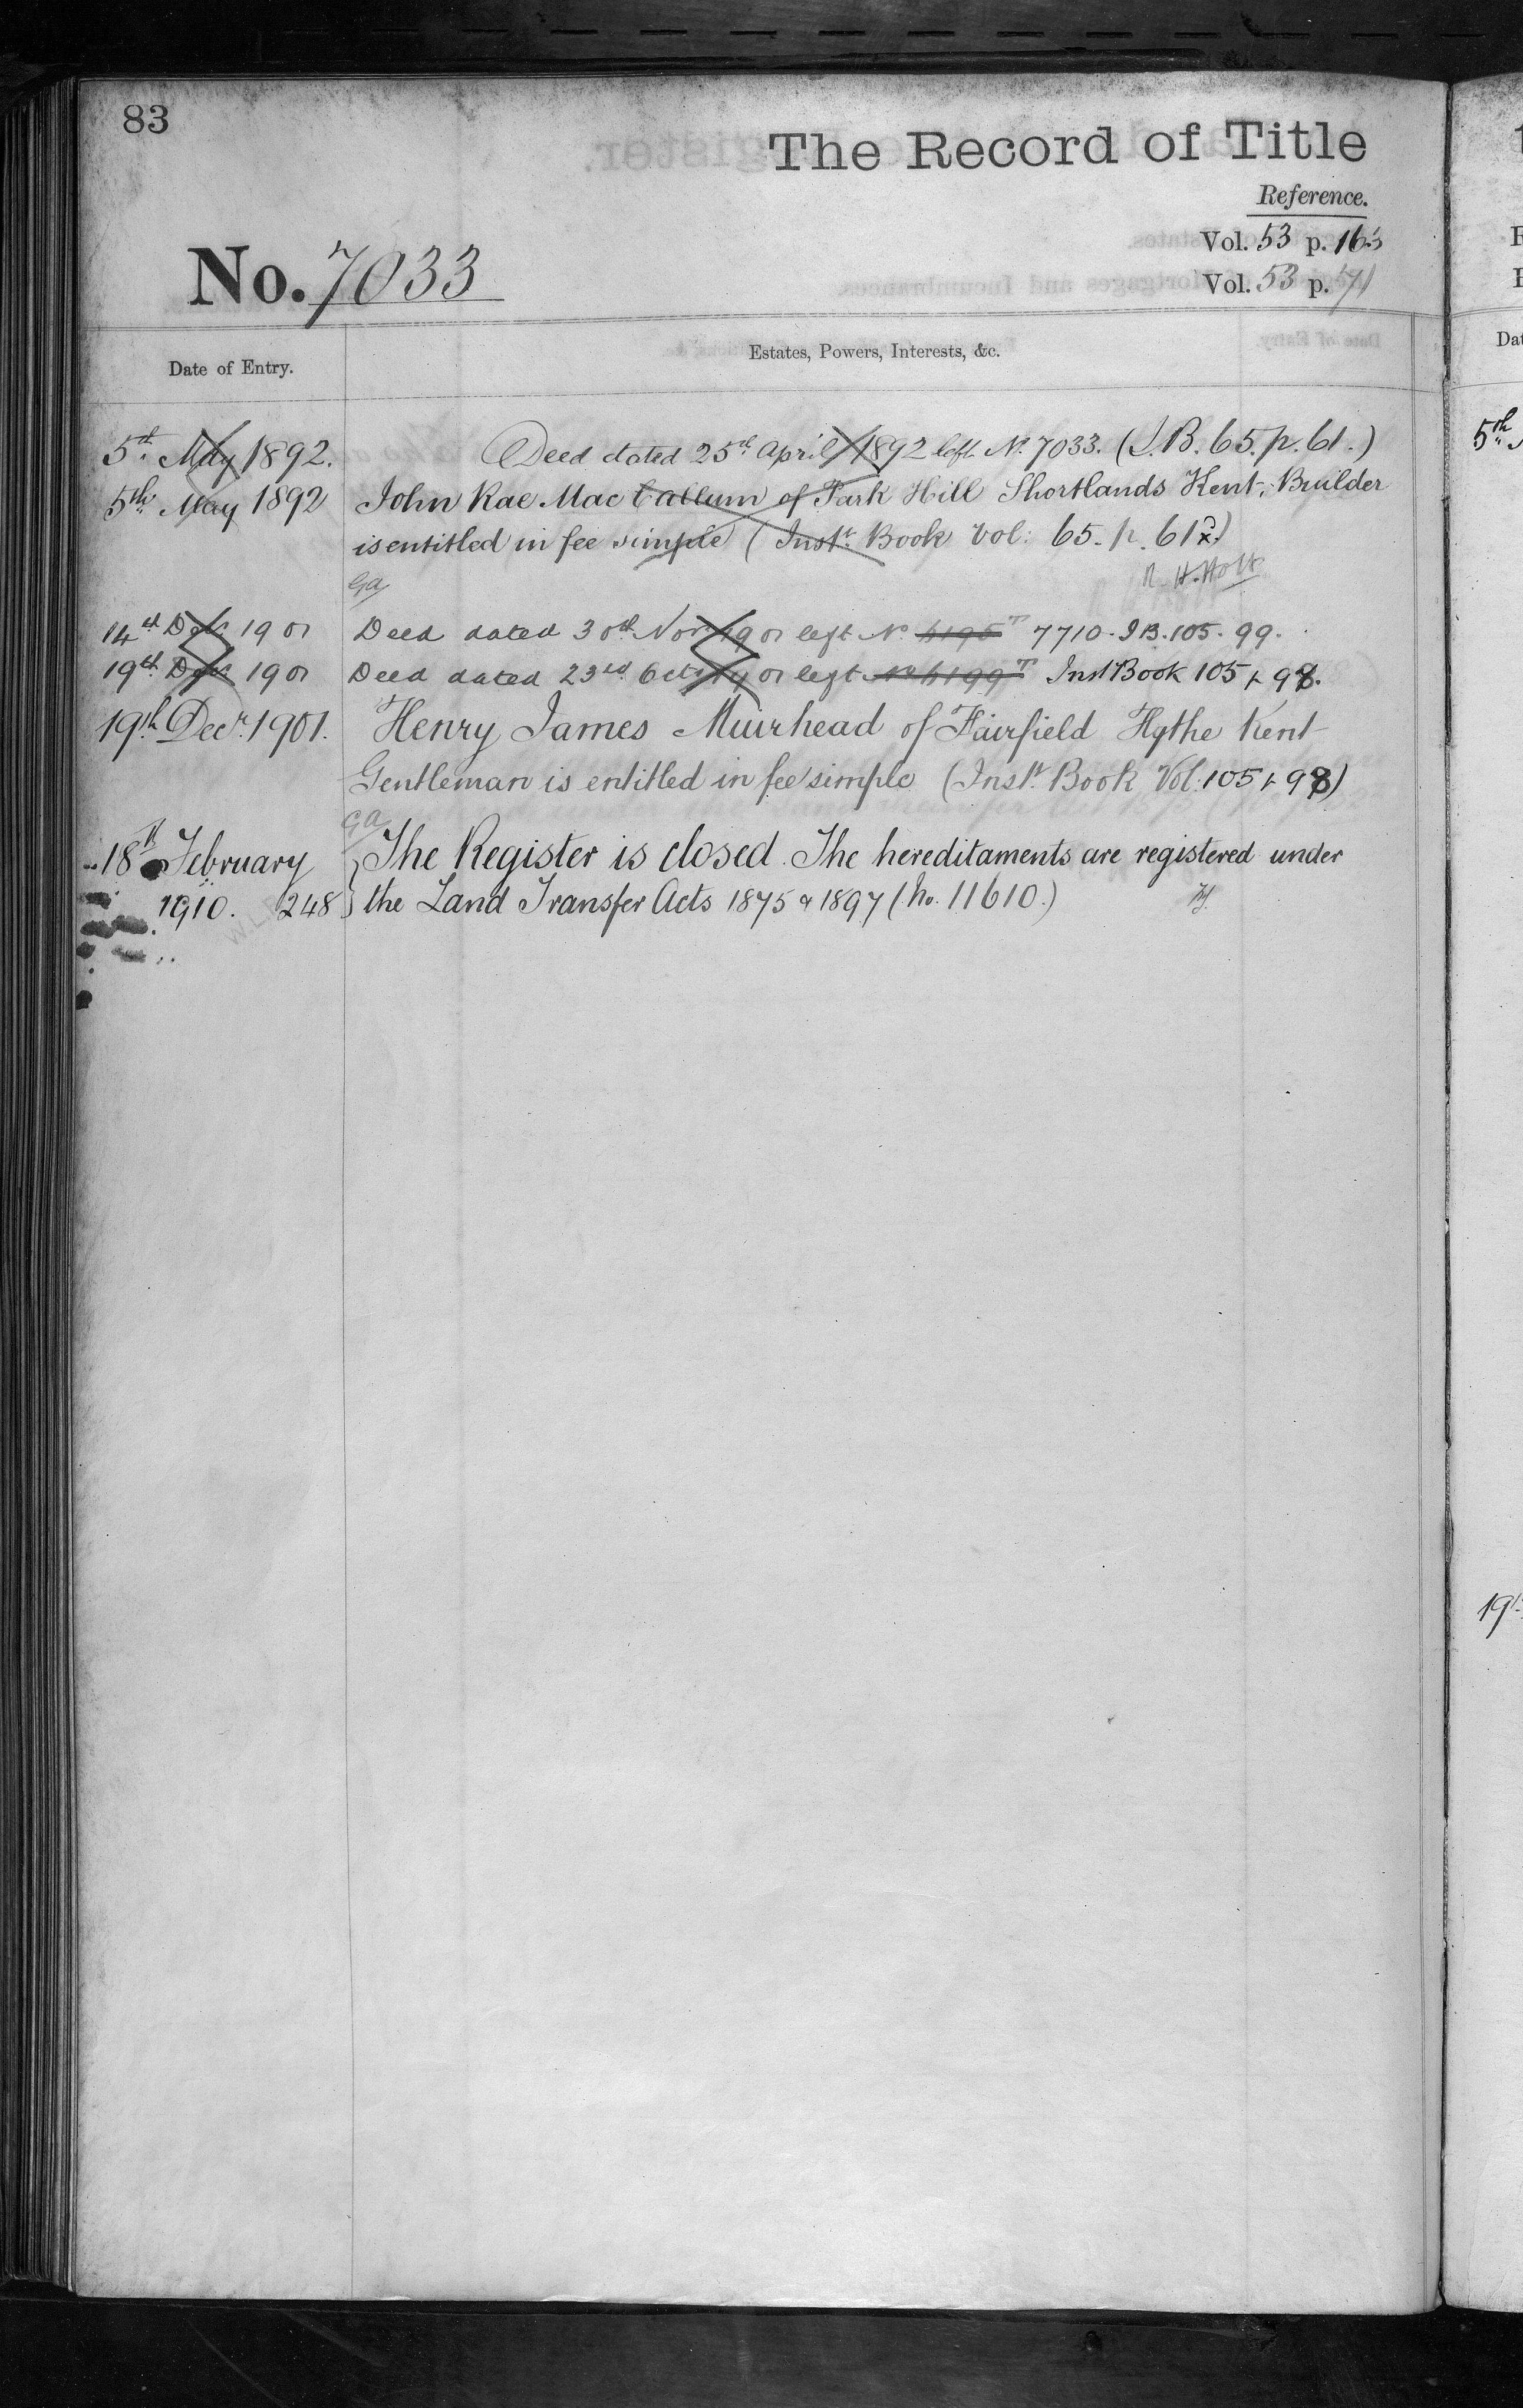 83
The Record of Title
Reference.
Vol. 53 p. 163
Vol. 53 p. 71
No. 7033
Date of Entry.
Estates, Powers, Interests, &c.
5th May 1892. Deed dated 25th April 1892 left No. 7033. (I.B. 65. p. 61.)
5th May 1892 John Rae Mac Callum of Park Hill Shortlands Kent, Builder
is entitled in fee simple (Inst. Book Vol: 65. p. 61.)
Ga
H. Holt
14th Dec. 1901 Deed dated 30th Nov. 1901 left No 6195 T 7710. I B. 105. 99.
19th Dec. 1901 Deed dated 23rd Oct. 1901 left No 6199 T Inst Book 105 p 98.
19th Decr. 1901. Henry James Muirhead of Fairfield Hythe Kent
Gentleman is entitled in fee simple (Inst. Book Vol. 105 p 98)
Ga
18th February The Register is closed. The hereditaments are registered under
1910. 248 the Land Transfer Acts 1875 & 1897 (No. 11610.)
5th
19